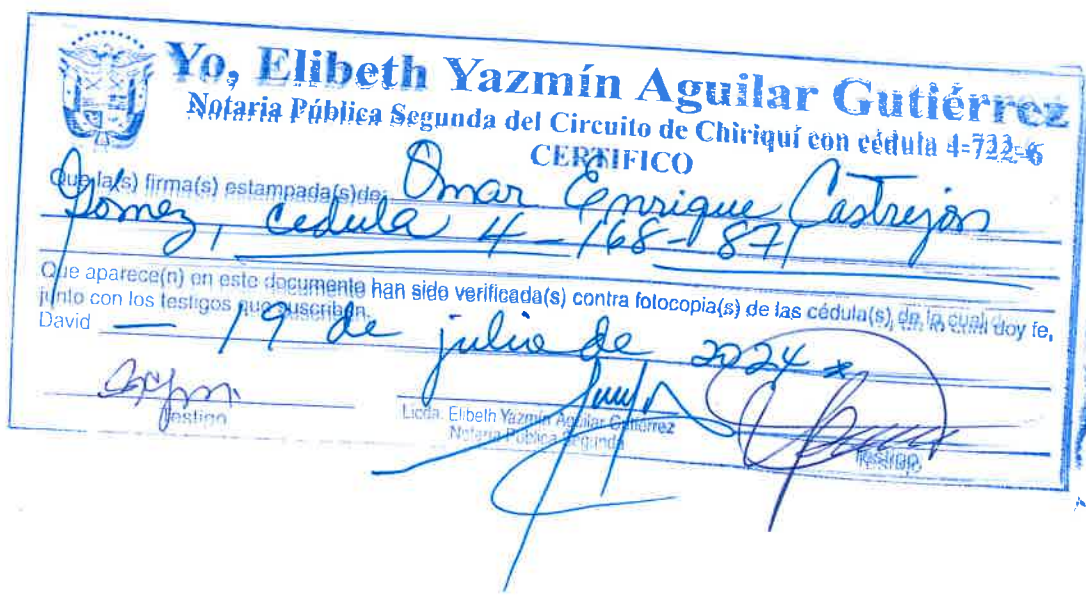 Yo, Elibeth Yazmín Aguilar Gutiérrez
Notaria Pública Segunda del Circuito de Chiriquí con cédula 4-722-6
CERTIFICO
Que la(s) firma(s) estampada(s) de: Omar Enrique Castrejón
Gómez, cedula 4-168-871
Que aparece(n) en este documento han sido verificada(s) contra fotocopia(s) de las cédula(s), de lo cual doy fe,
junto con los testigos que suscriben.
David — 19 de julio de 2024
Testigo
Licda. Elibeth Yazmín Aguilar Gutiérrez
Notaria Pública Segunda
Testigo